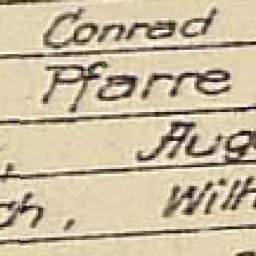 Conrad
Pfarre
, Aug
ch, Wilh